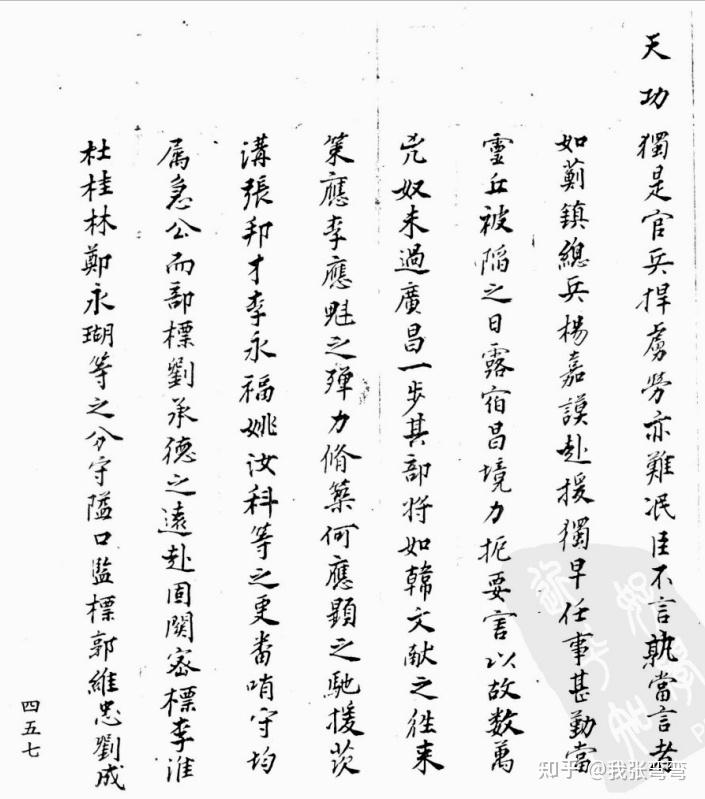 天功獨是官兵捍虜勞亦難泯臣不言孰當言者
如薊鎮總兵楊嘉謨赴援獨早任事甚勤當
靈丘被陷之日露宿昌境力扼要害以故数萬
兇奴未過廣昌一步其部將如韓文献之徃来
策應李應魁之殫力脩築何應顕之馳援茨
溝張邦才李永福姚汝科等之更畨哨守均
属急公而部標劉承德之遠赴固関宻標李淮
杜桂林鄭永瑚等之分守隘口監標郭維忠劉成
四五七
知乎 @我张弯弯